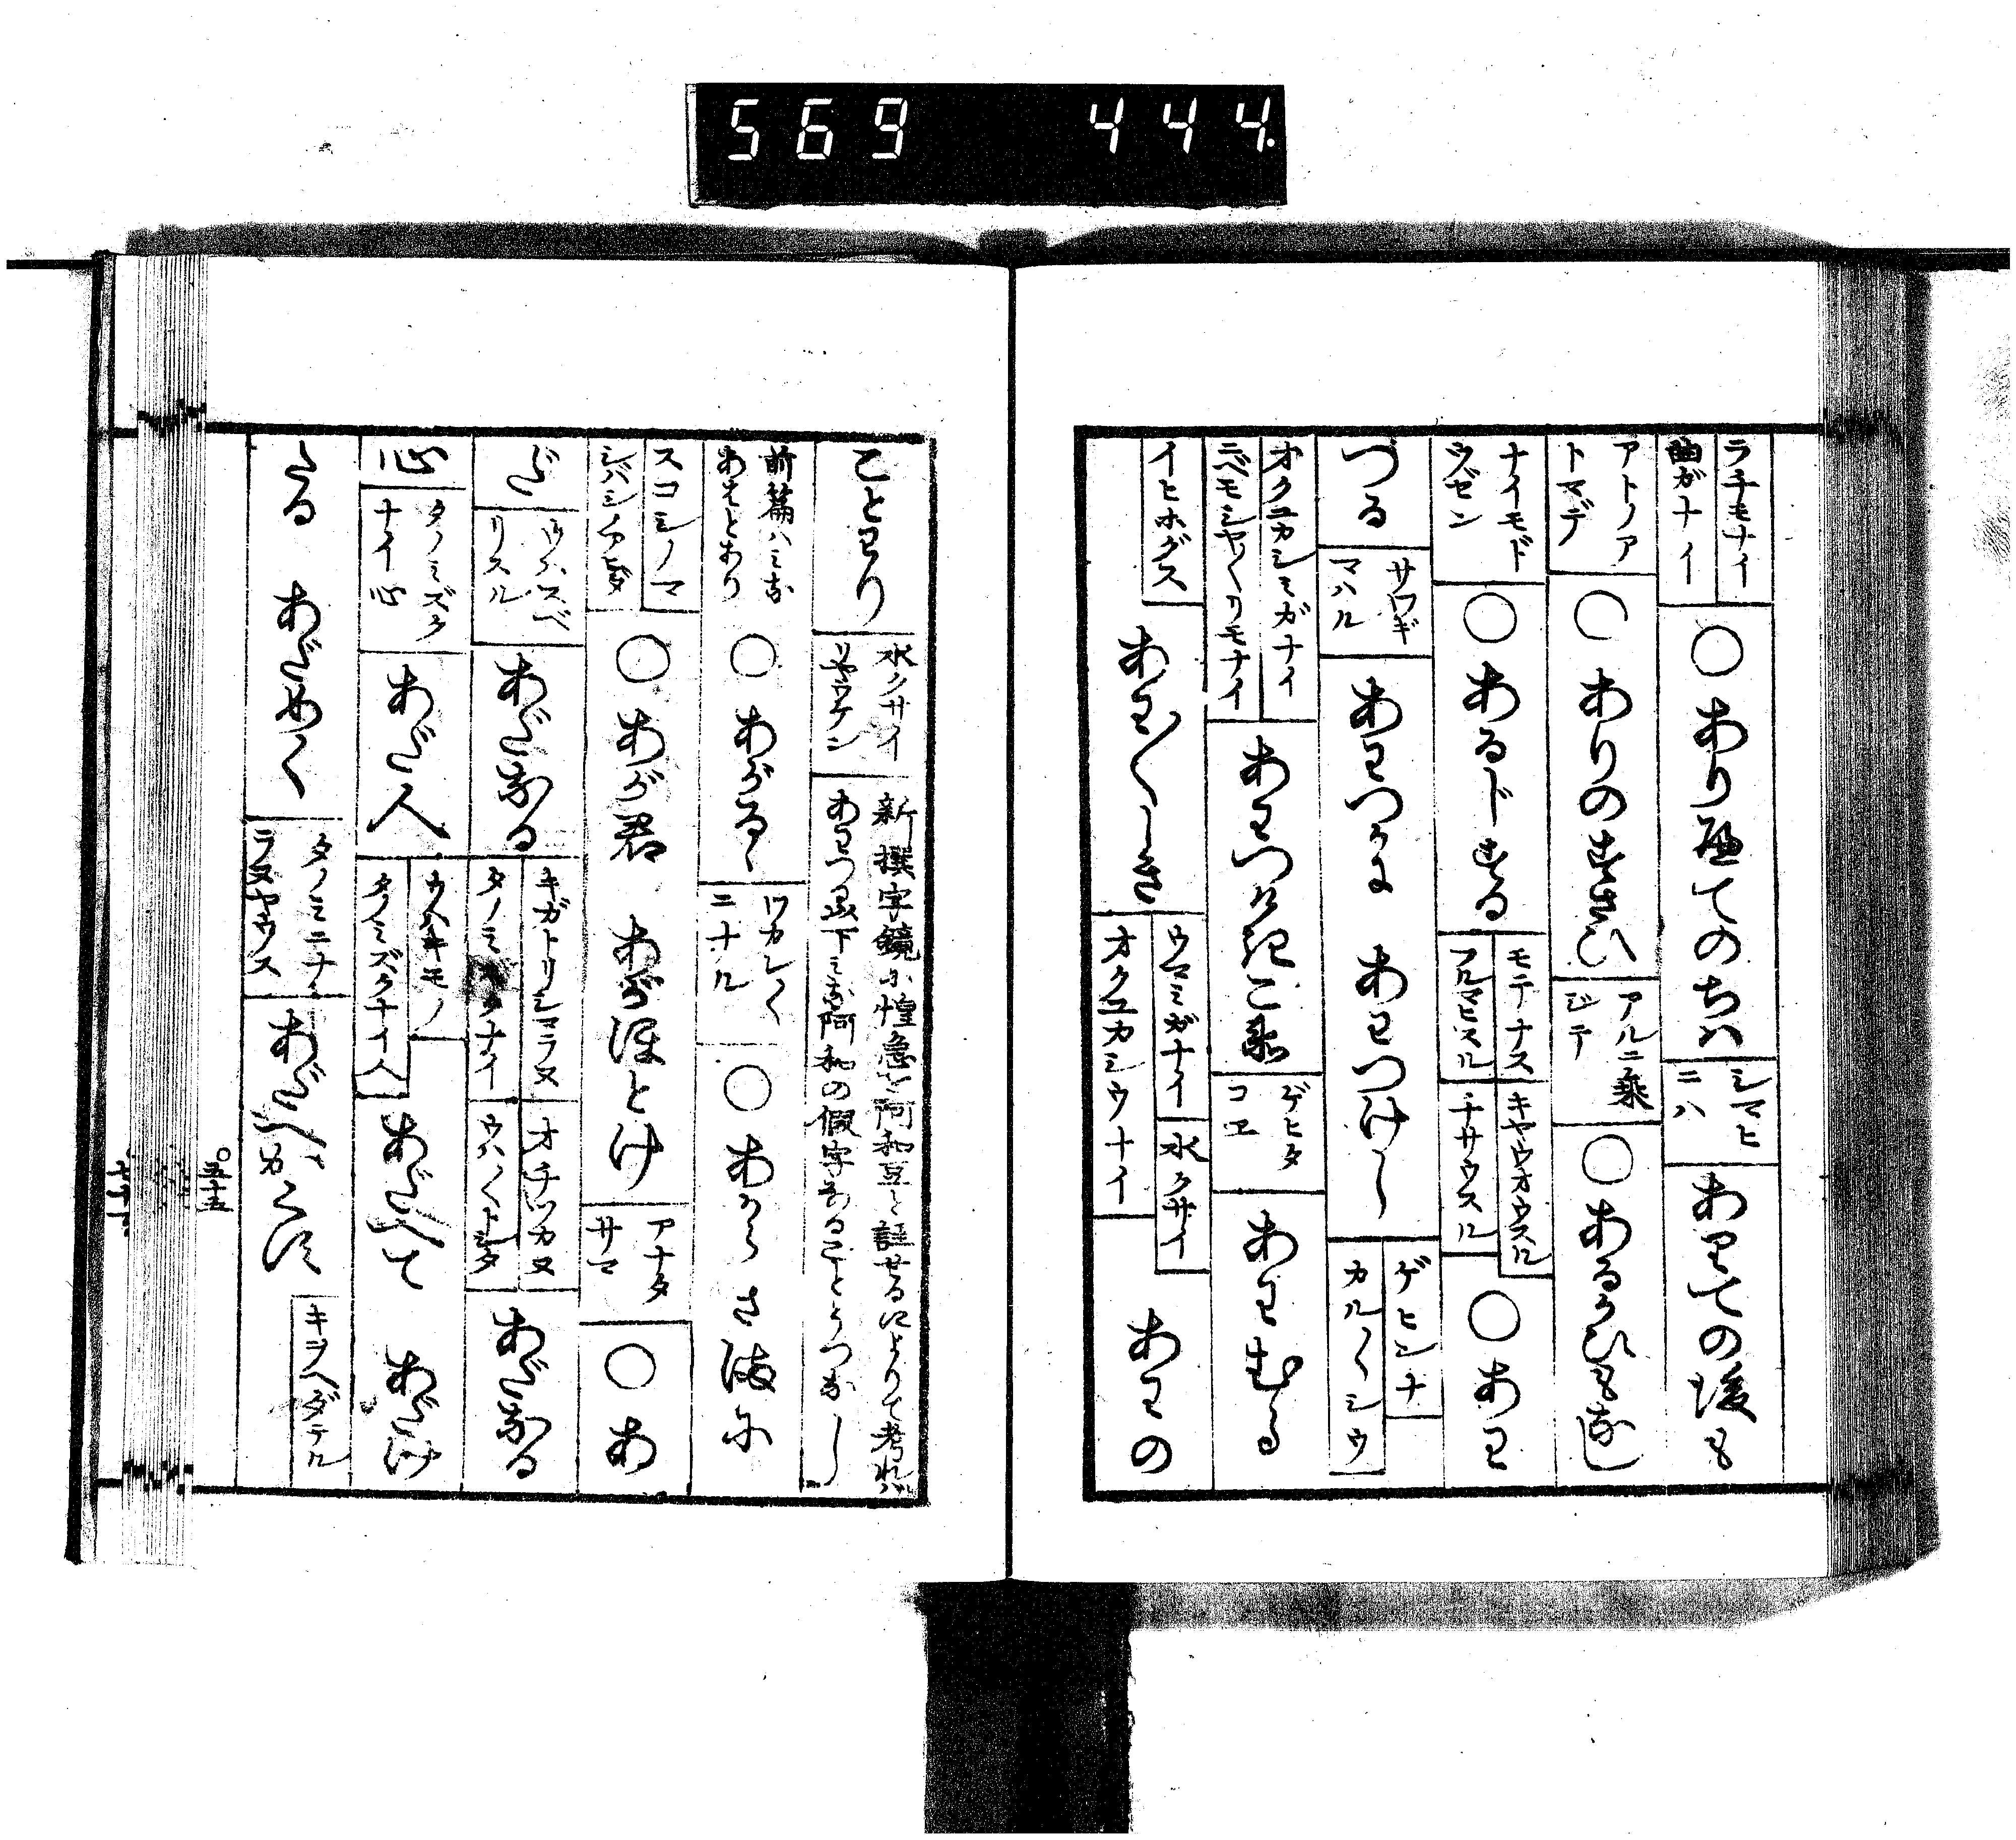 569 444.
ラチモナイ 曲ガナイ ○ありありてのちは シマヒニハ ありての後も
アトノアトマデ ○ありのすさび アルニ乗ジテ ○あるかひもなし
ナイモドウゼン ○あるじする モテナス フルマヒスル キヤウオウスル チサウスル ○あわ
づる サワギマハル あわつかに あわつけし ゲヒンナ カルガルシウ
オクユカシミガナイ ニベモシヤシヤリモナイ あわつけきこゑ ゲヒタコヱ あわむる
イヒホグス あわあわしき ウマミガナイ 水クサイ オクユカシウナイ あわの
ことわり 水クサイリヤウケン 新撰字鏡に惶急を阿和豆と註せるによりて考れば
あわつ以下みな阿和の假字なることうつなし
前篇ハみなあはとあり ○あがるる ワカレワカレニナル ○あからさまに
スコシノマ シバシチヨツト ○あが君 あがほとけ アナタサマ ○あ
だ ウハスベリスル あだなる キガトリシマラヌ タノミスクナイ オチツカヌ ウハウハトシタ あだなる
心 タノミズクナイ心 あだ人 ウハキモノ タノミズクナイ人 あだあだて あだけ
たる あだめく タノミニナラヌヤウス あだへかくす キヲヘダテル
五十五